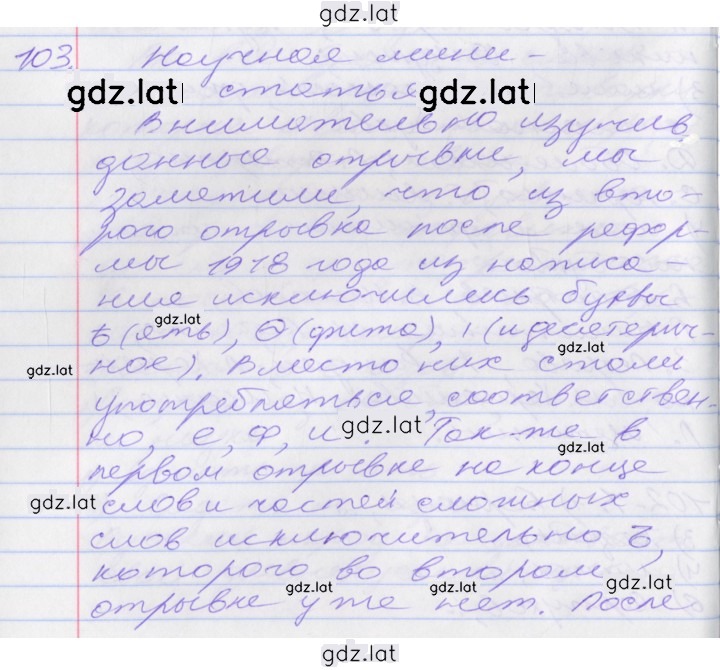 gdz.lat
103. Научная мини-
gdz.lat gdz.lat
статья
Внимательно изучив
данные отрывки, мы
заметили, что из вто-
рого отрывка после рефор-
мы 1918 года из написа-
ния исключились буквы
gdz.lat
ѣ (ять), Ѳ (фита), і (и десетерич-
gdz.lat
ное). Вместо них стали
gdz.lat
употребляться, соответствен-
но, е, ф, и. Так-же в
gdz.lat
первом отрывке на конце
gdz.lat слов и частей сложных
слов исключительно Ъ,
которого во втором
gdz.lat gdz.lat gdz.lat
отрывке уже нет. После
gdz.lat